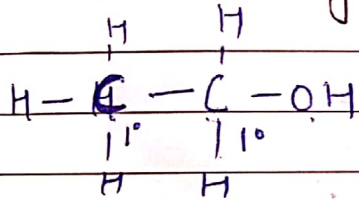 H H
H — C — C — OH
1° 1°
H H